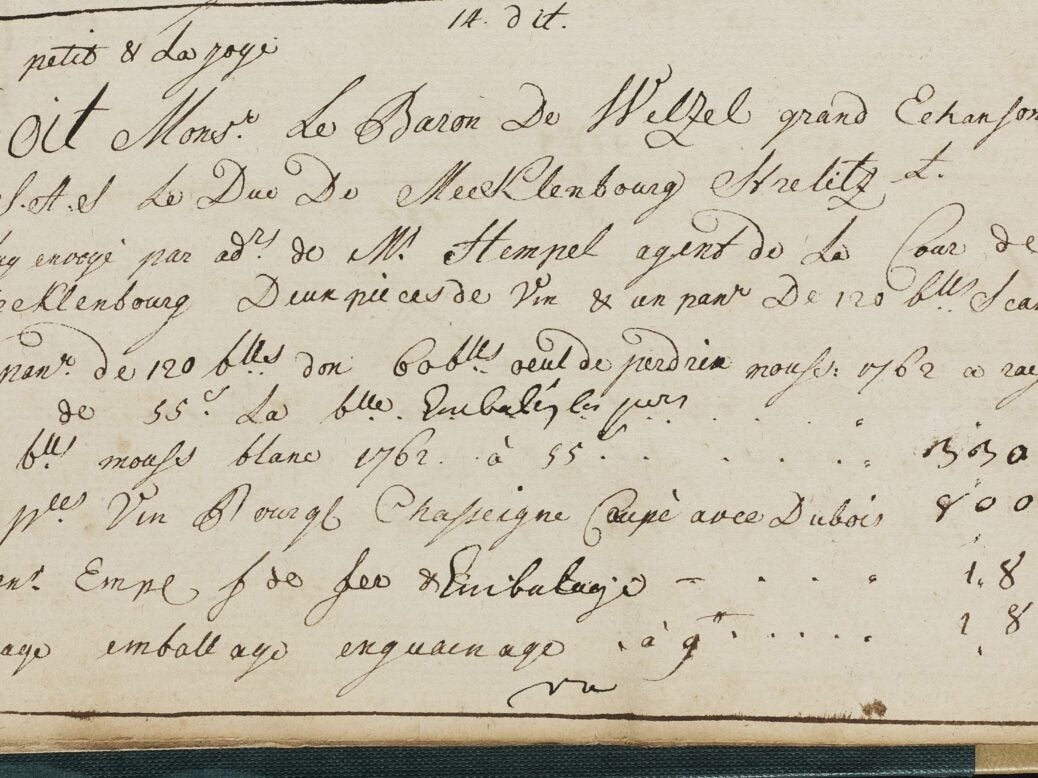 14. dit.
petit & La joye
oit Mons.r Le Baron De Welzel grand Echanson
S.A.S Le Duc De Mecklenbourg Strelitz
envoyé par adrs de Mr. Hempel agent de La Cour de
ecklenbourg Deux pieces de Vin & un panr De 120 blls
panr. de 120 blls don 60 blls oeul de perdrix mouss: 1762 a
de 55s La blle.
blls mouss blanc 1762. à 55s. 330
plles Vin Bourgs Chasseigne Coupé avec Dubois 800
Empl f de fer & Embalage 18
age emballage enguainage à 9 18
vu